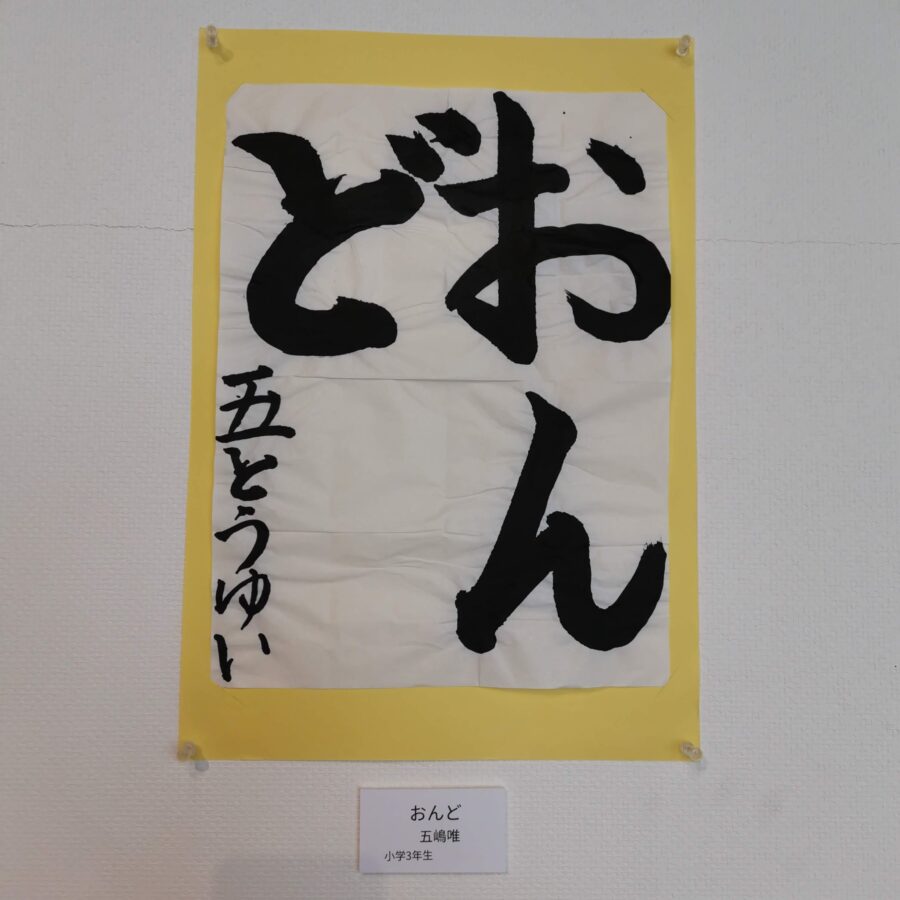 おん
ど
五とうゆい
おんど
五嶋唯
小学3年生